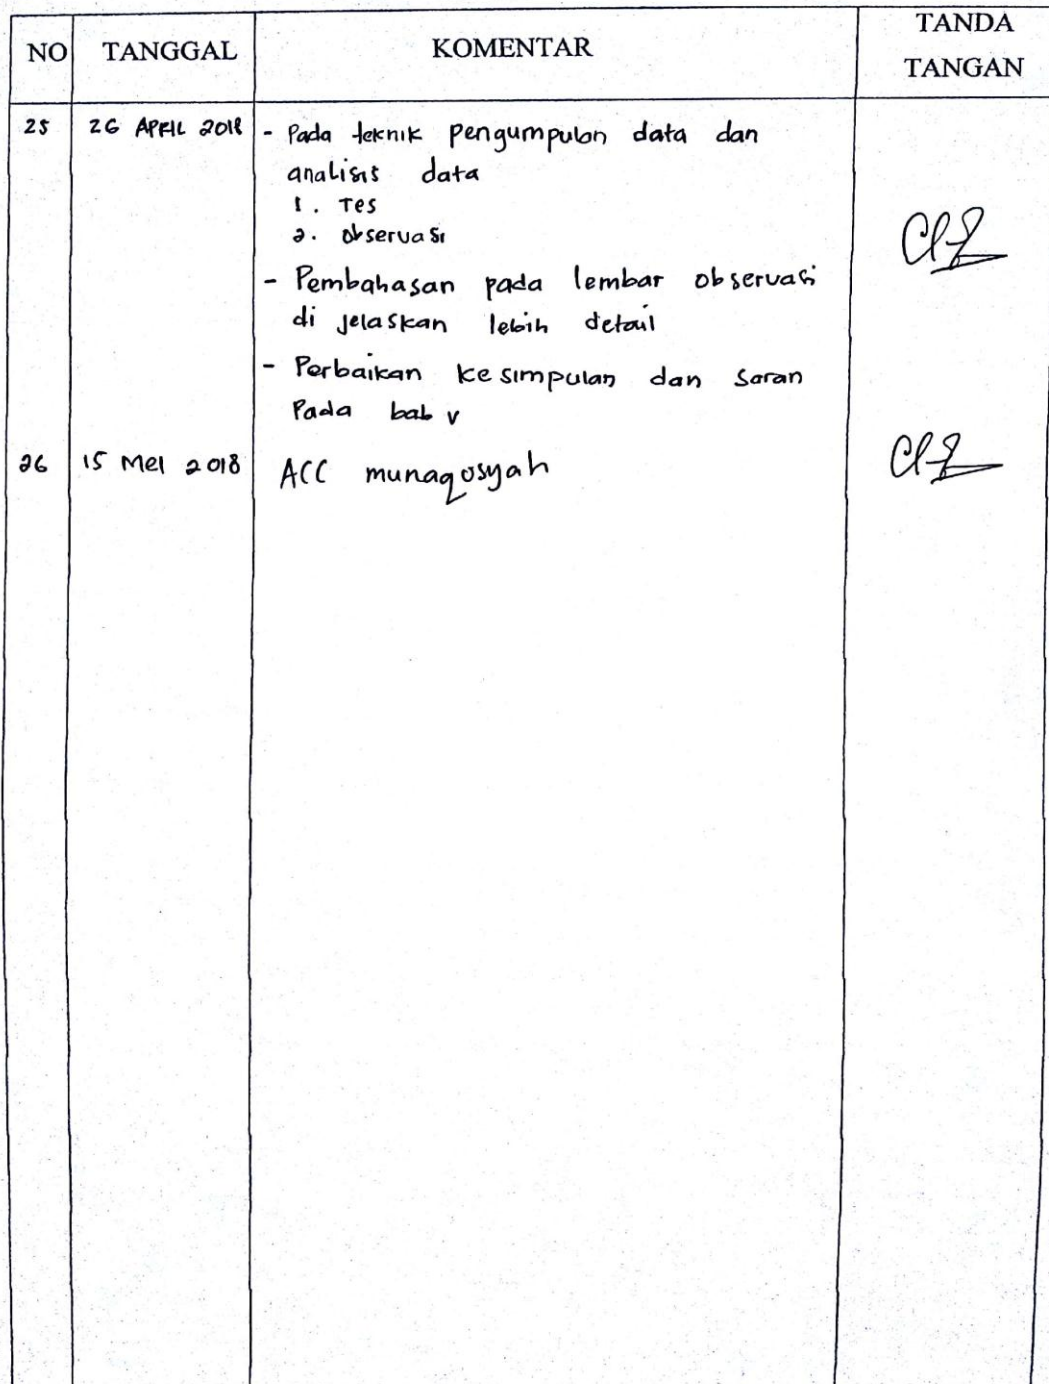 NO TANGGAL KOMENTAR TANDA TANGAN
25 26 APRIL 2018 - Pada teknik pengumpulan data dan
analisis data
1. Tes
2. observasi
- Pembahasan pada lembar observasi
di jelaskan lebih detail
- Perbaikan kesimpulan dan saran
Pada bab V
26 15 Mei 2018 ACC munaqosyah